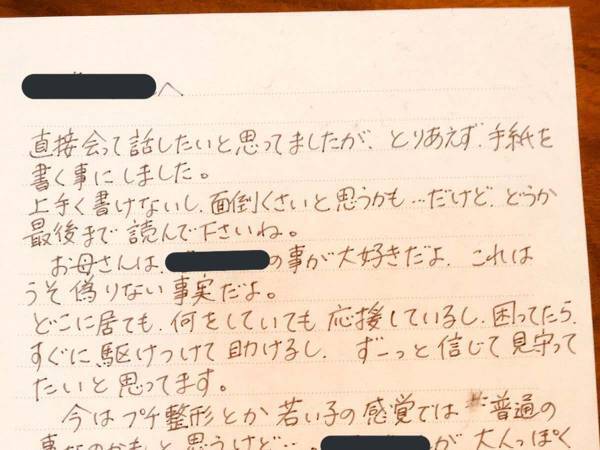 へ
直接会って話したいと思ってましたが、とりあえず、手紙を
書く事にしました。
上手く書けないし、面倒くさいと思うかも…だけど、どうか
最後まで読んで下さいね。
お母さんは、の事が大好きだよ、これは
うそ偽りない事実だよ。
どこに居ても、何をしていても応援しているし、困ってたら、
すぐに駆けつけて助けるし、ずーっと信じて見守って
たいと思ってます。
今はプチ整形とか若い子の感覚では普通の
事なのかもと思うけど…。が大人っぽく